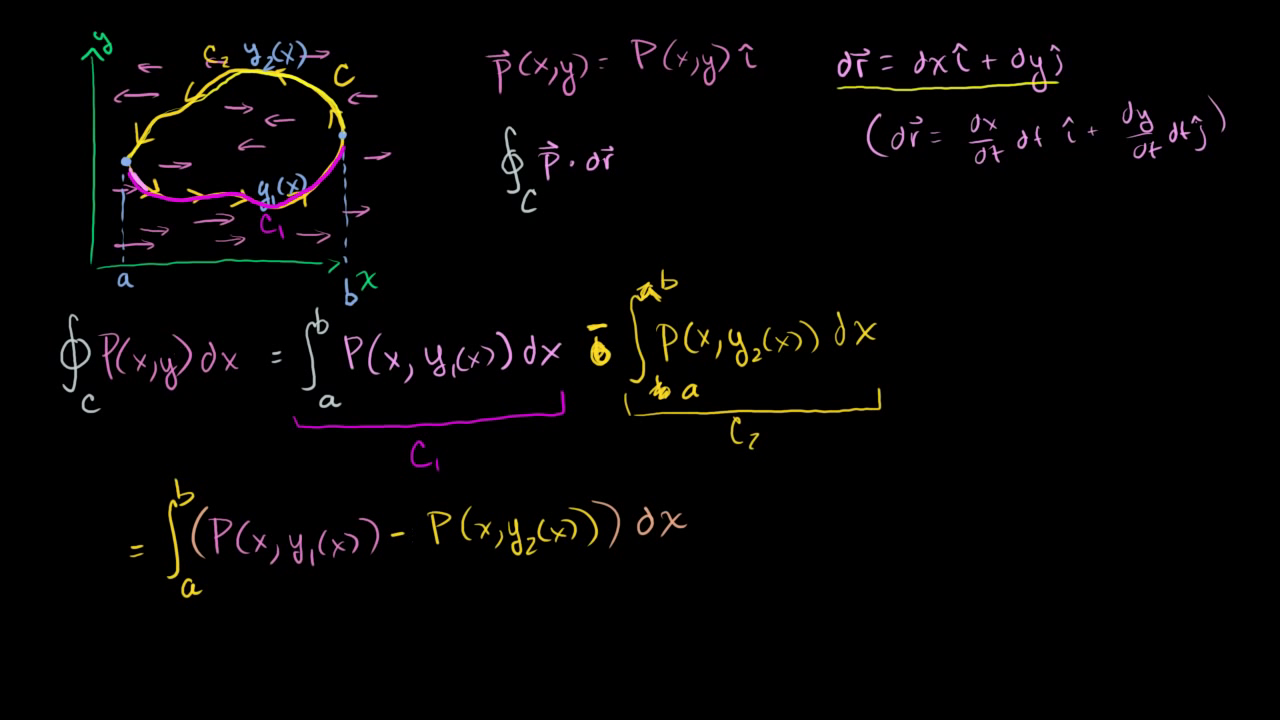 y
C₂ y₂(x)
C
y₁(x)
C₁
a
b x
p⃗(x,y) = P(x,y) î
dr⃗ = dx î + dy ĵ
(dr⃗ = dx/dt dt î + dy/dt dt ĵ)
∮_C p⃗ · dr⃗
∮_C P(x,y) dx = ∫_a^b P(x, y₁(x)) dx - ∫_a^b P(x, y₂(x)) dx
C₁ C₂
= ∫_a^b (P(x, y₁(x)) - P(x, y₂(x))) dx